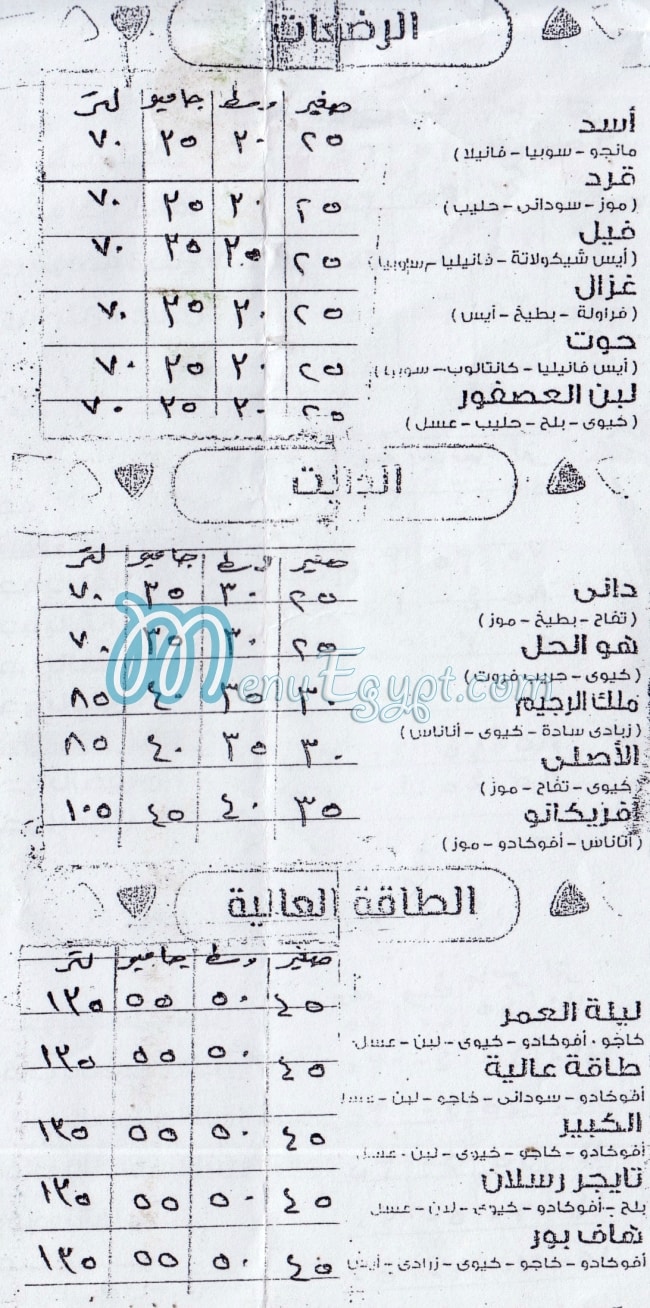 الرضعات
صغير وسط جامبو لتر
أسد ٢٥ ٣٠ ٣٥ ٧٠
مانجو - سوبيا - فانيلا )
قرد ٢٥ ٣٠ ٣٥ ٧٠
( موز - سودانى - حليب )
فيل ٢٥ ٣٠ ٣٥ ٧٠
( أيس شيكولاتة - فانيليا - سوبيا )
غزال ٢٥ ٣٠ ٣٥ ٧٠
( فراولة - بطيخ - أيس )
حوت ٢٥ ٣٠ ٣٥ ٧٠
( أيس فانيليا - كانتالوب - سوبيا )
لبن العصفور ٢٥ ٣٠ ٣٥ ٧٠
( كيوى - بلح - حليب - عسل )
الدايت
صغير وسط جامبو لتر
دانى ٢٥ ٣٠ ٣٥ ٧٠
( تفاح - بطيخ - موز )
هو الحل ٢٥ ٣٠ ٣٥ ٧٠
( كيوى - جريب فروت )
MenuEgypt.com
ملك الرجيم ٣٠ ٣٥ ٤٠ ٨٥
( زبادى سادة - كيوى - أناناس )
الأصلى ٣٠ ٣٥ ٤٠ ٨٥
كيوى - تفاح - موز )
أفريكانو ٣٥ ٤٠ ٤٥ ١٠٥
( أناناس - أفوكادو - موز )
الطاقة العالية
صغير وسط جامبو لتر
ليلة العمر ٤٥ ٥٠ ٥٥ ١٣٥
كاجو - أفوكادو - كيوى - لبن - عسل
طاقة عالية ٤٥ ٥٠ ٥٥ ١٣٥
أفوكادو - سودانى - كاجو - لبن - عسل
الكبير ٤٥ ٥٠ ٥٥ ١٣٥
أفوكادو - كاجو - كيوى - لبن - عسل
تايجر رسلان ٤٥ ٥٠ ٥٥ ١٣٥
بلح - أفوكادو - كيوى - لبن - عسل
هاف بور ٤٥ ٥٠ ٥٥ ١٣٥
أفوكادو - كاجو - كيوى - زبادى - أيس